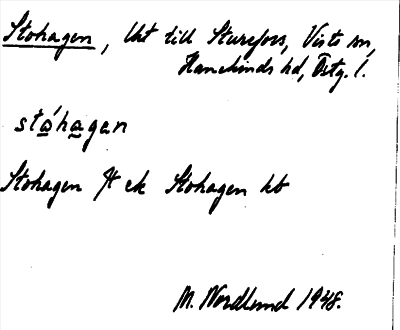 Stohagen, lht till Sturefors, Vists sn,
Hanekinds hd, Östg. l.
stóhagan
Stohagen ek Stohagen kb
M. Nordlund 1948.